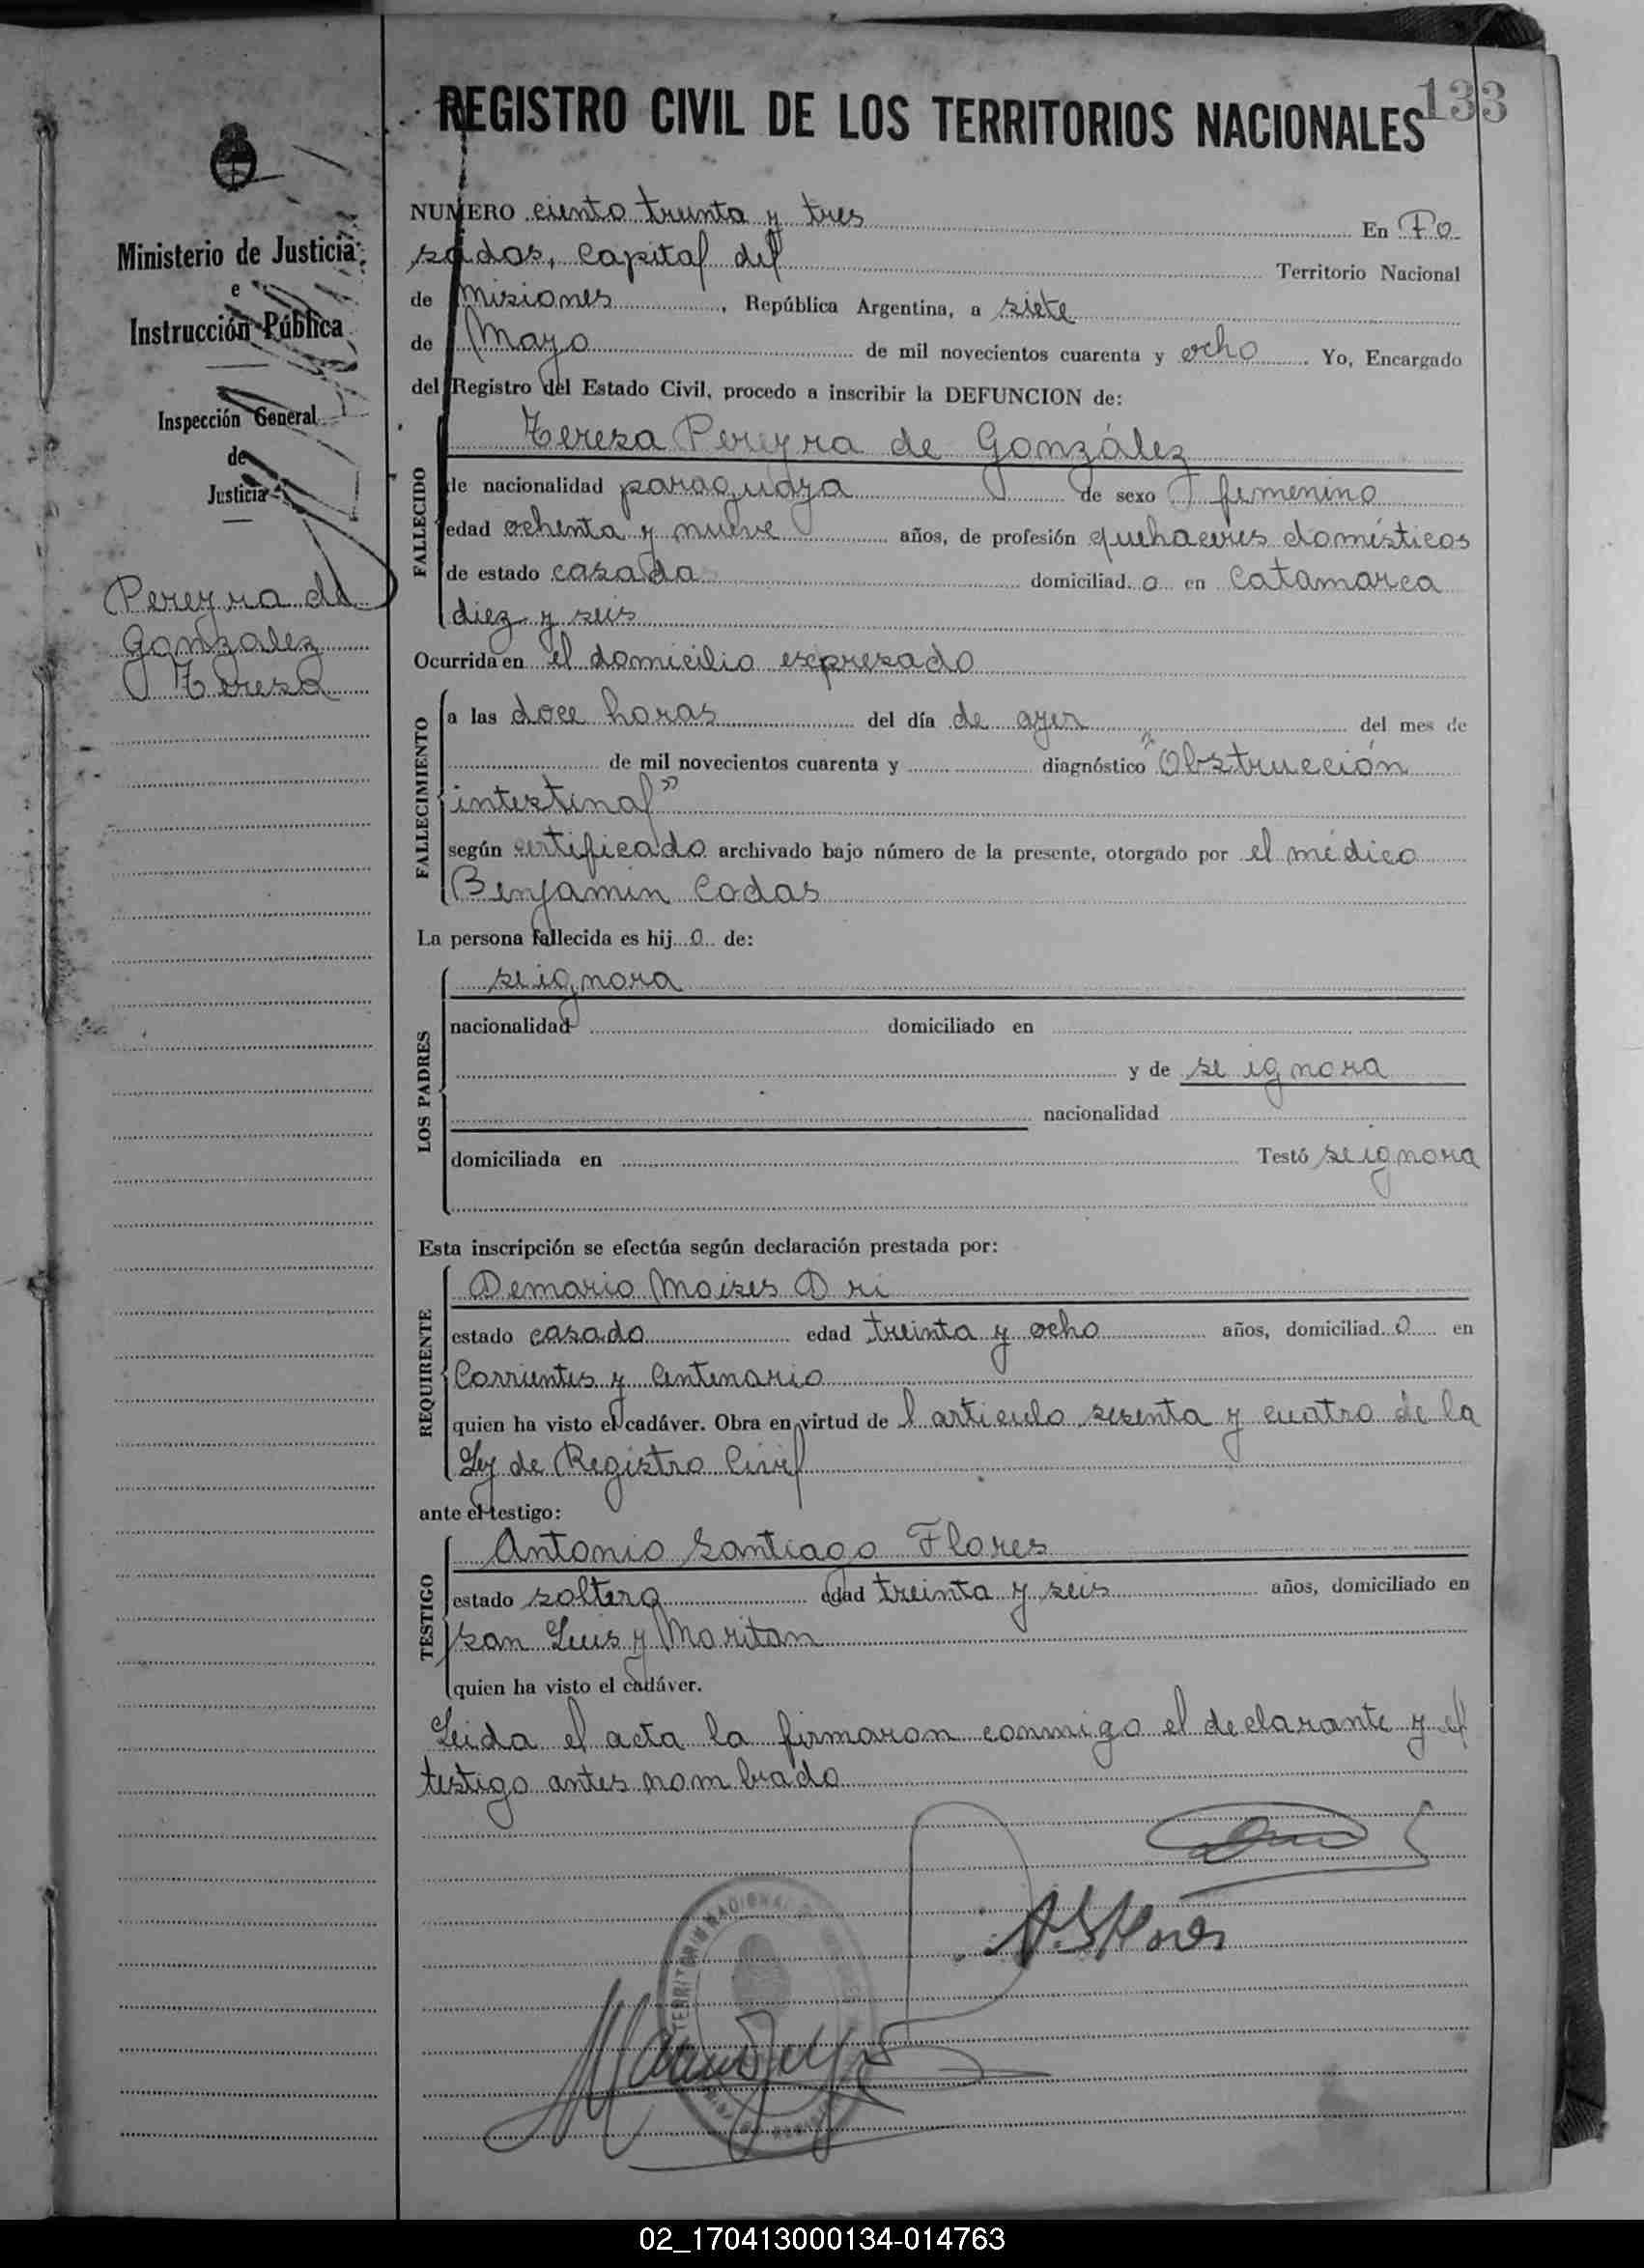 133
REGISTRO CIVIL DE LOS TERRITORIOS NACIONALES
Ministerio de Justicia
e
Instrucción Pública
Inspección General
de
Justicia
Pereyra de
Gonzalez
Teresa
NUMERO ciento treinta y tres En Po
sadas, Capital del Territorio Nacional
de Misiones, República Argentina, a siete
de Mayo de mil novecientos cuarenta y ocho. Yo, Encargado
del Registro del Estado Civil, procedo a inscribir la DEFUNCION de:
FALLECIDO
Teresa Pereyra de González
de nacionalidad paraguaya de sexo femenino
edad ochenta y nueve años, de profesión quehaceres domésticos
de estado casada domiciliad a en Catamarca
diez y seis
Ocurrida en el domicilio expresado
FALLECIMIENTO
a las doce horas del día de ayer del mes de
de mil novecientos cuarenta y diagnóstico "Obstrucción
intestinal"
según certificado archivado bajo número de la presente, otorgado por el médico
Benjamin Codas
La persona fallecida es hij a de:
LOS PADRES
se ignora
nacionalidad domiciliado en
y de se ignora
nacionalidad
domiciliada en Testó se ignora
Esta inscripción se efectúa según declaración prestada por:
REQUIRENTE
Demario Moises Dri
estado casado edad treinta y ocho años, domiciliad o en
Corrientes y Centenario
quien ha visto el cadáver. Obra en virtud de l articulo sesenta y cuatro de la
Ley de Registro Civil
ante el testigo:
TESTIGO
Antonio Santiago Flores
estado soltero edad treinta y seis años, domiciliado en
San Luis y Maritan
quien ha visto el cadáver.
Leida el acta la firmaron conmigo el declarante y el
testigo antes nombrado
A. S. Flores
02_170413000134-014763